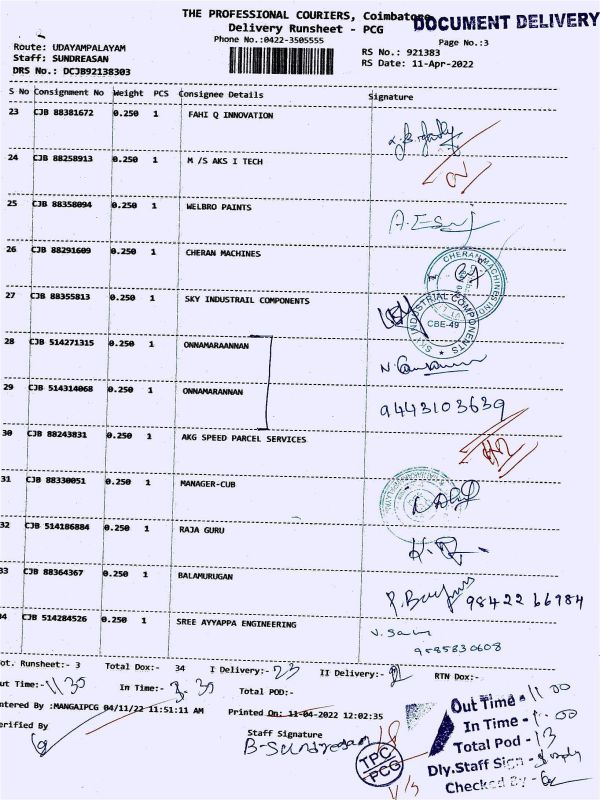 THE PROFESSIONAL COURIERS, Coimbatore
DOCUMENT DELIVERY
Delivery Runsheet - PCG
Phone No.:0422-3505555
Page No.:3
Route: UDAYAMPALAYAM
RS No.: 921383
Staff: SUNDREASAN
RS Date: 11-Apr-2022
DRS No.: DCJB92138303
S No Consignment No Weight PCS Consignee Details Signature
23 CJB 88381672 0.250 1 FAHI Q INNOVATION
24 CJB 88258913 0.250 1 M /S AKS I TECH
25 CJB 88358094 0.250 1 WELBRO PAINTS
26 CJB 88291609 0.250 1 CHERAN MACHINES
CHERAN MACHINES
27 CJB 88355813 0.250 1 SKY INDUSTRAIL COMPONENTS
SKY INDUSTRIAL COMPONENTS
CBE-49
28 CJB 514271315 0.250 1 ONNAMARAANNAN
29 CJB 514314068 0.250 1 ONNAMARANNAN
9443103639
30 CJB 88243831 0.250 1 AKG SPEED PARCEL SERVICES
31 CJB 88330051 0.250 1 MANAGER-CUB
32 CJB 514186884 0.250 1 RAJA GURU
33 CJB 88364367 0.250 1 BALAMURUGAN
98422 66984
34 CJB 514284526 0.250 1 SREE AYYAPPA ENGINEERING
9585830608
ot. Runsheet:- 3 Total Dox:- 34 I Delivery:- 23 II Delivery:- RTN Dox:-
ut Time:- 11 35 In Time:- 3.35 Total POD:-
ntered By :MANGAIPCG 04/11/22 11:51:11 AM Printed On: 11-04-2022 12:02:35
erified By
Staff Signature
B-Sundreasan
TPC
PCG
Out Time - 11 00
In Time - 1.00
Total Pod - 13
Dly.Staff Sign -
Checked By -